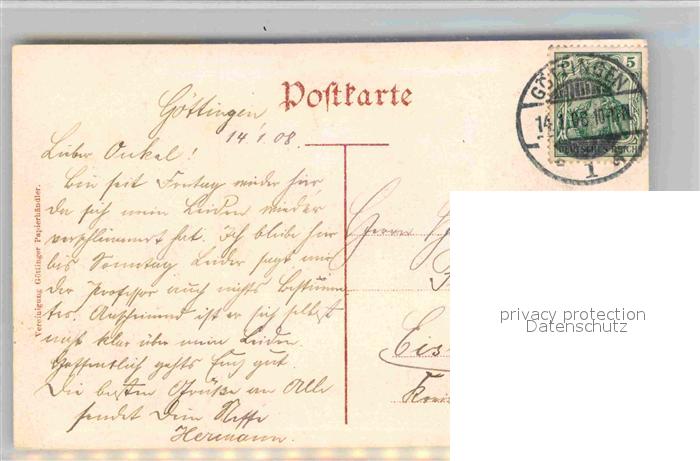 Postkarte
Göttingen
14/1 08.
Lieber Onkel!
Bin seit Freitag wieder hier,
da sich mein Leiden wieder
verschlimmert hat. Ich bleibe hier
bis Sonntag Leider sagt mir
der Professor auch nichts bestimm
tes. Anscheinend ist er sich selbst
nicht klar über mein Leiden.
Hoffentlich gehts Euch gut.
Die besten Grüße an Alle
sendet Dein Neffe
Hermann.
Vereinigung Göttinger Papierhändler.
GÖTTINGEN
14.1.08 10-11V
1
5
DEUTSCHES REICH
Herrn
Eis
privacy protection
Datenschutz